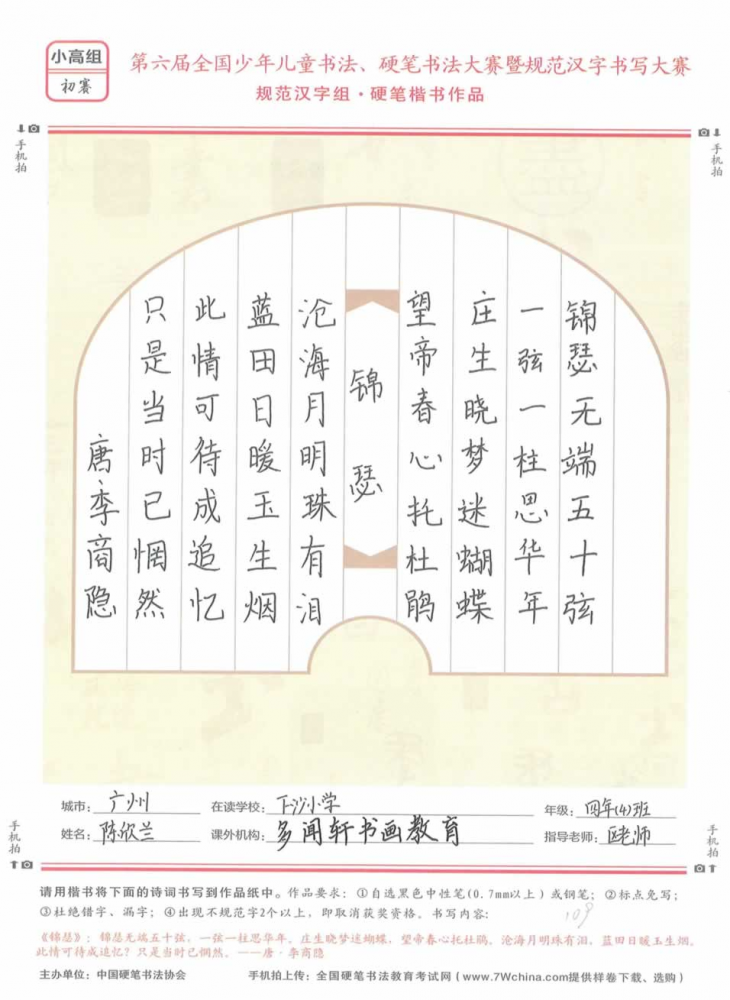 小高组
初赛
第六届全国少年儿童书法、硬笔书法大赛暨规范汉字书写大赛
规范汉字组·硬笔楷书作品
手机拍
手机拍
锦瑟无端五十弦
一弦一柱思华年
庄生晓梦迷蝴蝶
望帝春心托杜鹃
锦瑟
沧海月明珠有泪
蓝田日暖玉生烟
此情可待成追忆
只是当时已惘然
唐·李商隐
城市：广州 在读学校：下沙小学 年级：四年(4)班
姓名：陈欣兰 课外机构：多闻轩书画教育 指导老师：区老师
手机拍
手机拍
请用楷书将下面的诗词书写到作品纸中。作品要求：①自选黑色中性笔(0.7mm以上）或钢笔；②标点免写；
③杜绝错字、漏字；④出现不规范字2个以上，即取消获奖资格。书写内容：
109
《锦瑟》：锦瑟无端五十弦，一弦一柱思华年。庄生晓梦迷蝴蝶，望帝春心托杜鹃。沧海月明珠有泪，蓝田日暖玉生烟。
此情可待成追忆？只是当时已惘然。——唐·李商隐
主办单位：中国硬笔书法协会 手机拍上传：全国硬笔书法教育考试网（www.7Wchina.com提供样卷下载、选购）